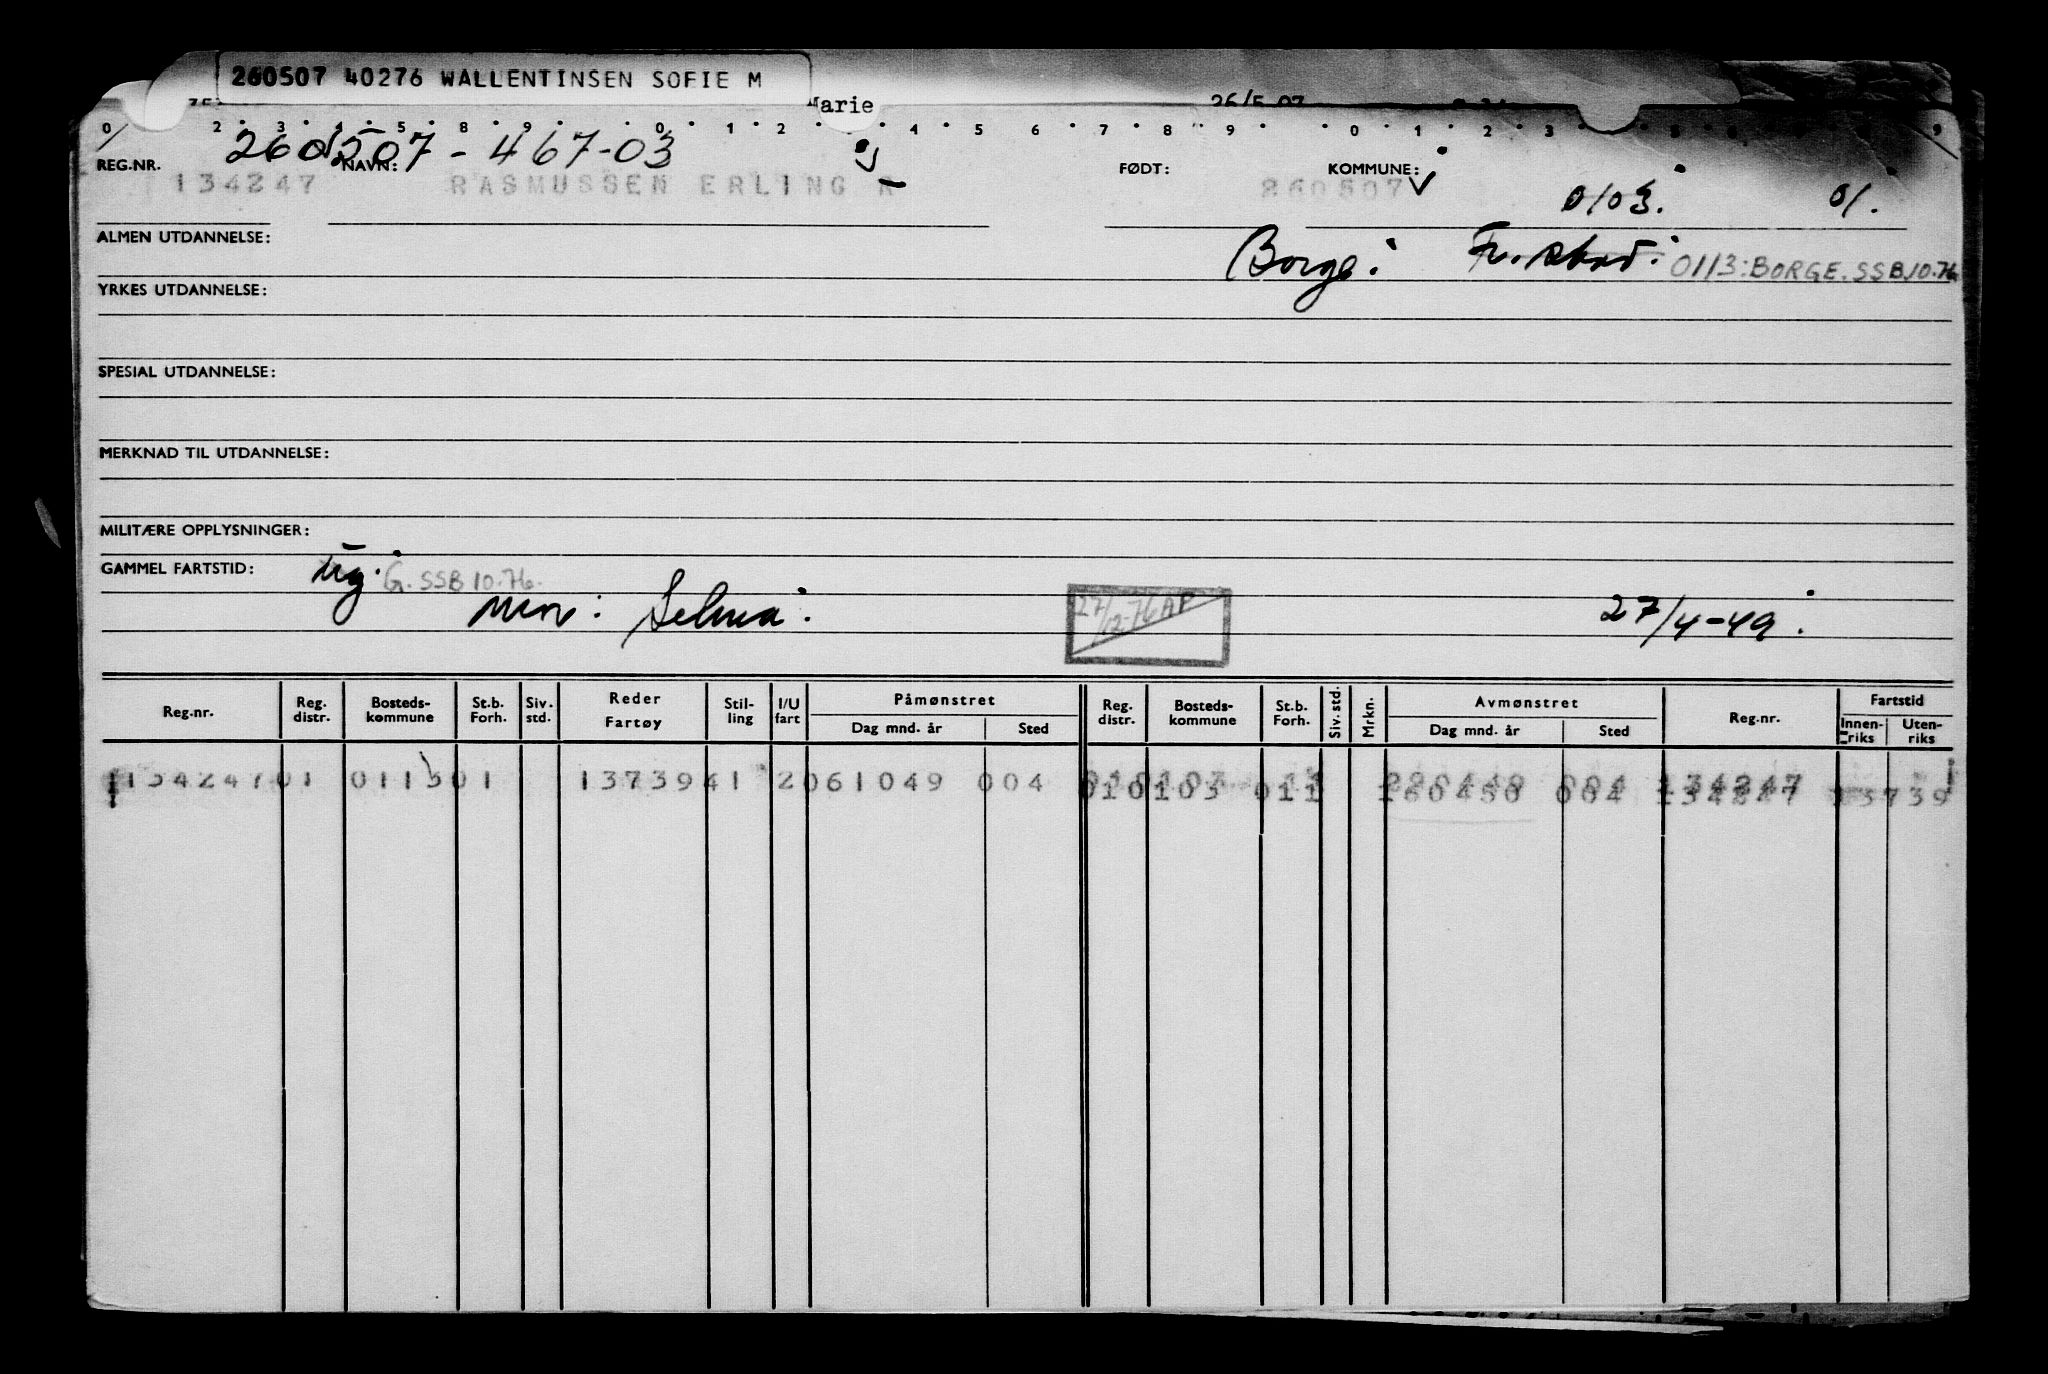 260507 40276 WALLENTINSEN SOFIE M
Marie 26/5 07
260507 - 467-03
REG.NR. NAVN: FØDT: KOMMUNE:
134247 RASMUSSEN ERLING R 260507 0103. 01.
ALMEN UTDANNELSE: Borge. Fr.stad. 0113:BORGE.SSB.10.76
YRKES UTDANNELSE:
SPESIAL UTDANNELSE:
MERKNAD TIL UTDANNELSE:
MILITÆRE OPPLYSNINGER:
GAMMEL FARTSTID: ug. G. SSB 10.76.
mor: Selma. 27/12-76 AP 27/4-49.
Reg.nr. Reg. distr. Bosteds-kommune St.b. Forh. Siv. std. Reder Fartøy Stil-ling I/U fart Påmønstret Dag mnd. år Sted Reg. distr. Bosteds-kommune St.b. Forh. Siv. std. Mrkn. Avmønstret Dag mnd. år Sted Reg.nr. Fartstid Innen-riks Uten-riks
134247 01 0113 01 13739 41 2 061049 004 010103 011 160450 004 134247 13739